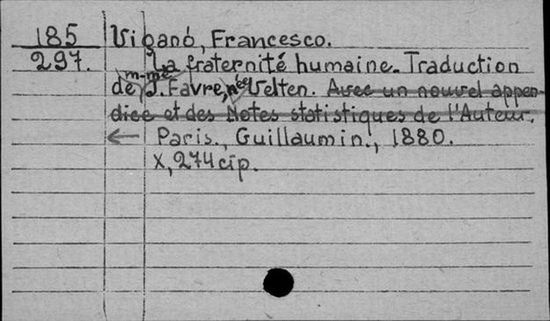 185
297.
Viganó, Francesco.
La fraternité humaine. Traduction
de m-me J. Favre, née Velten. Avec un nouvel appen-
dice et des Notes statistiques de l'Auteur.
← Paris., Guillaumin., 1880.
X, 274 cip.